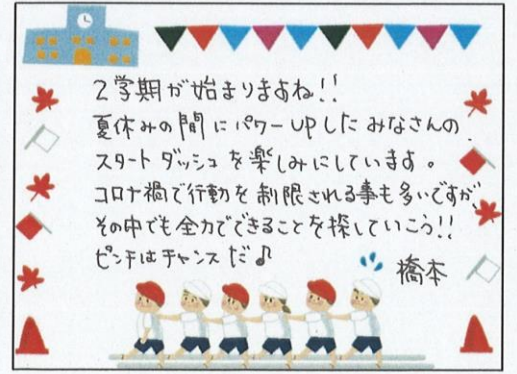 2学期が始まりますね!!
夏休みの間にパワーUPしたみなさんの
スタートダッシュを楽しみにしています。
コロナ禍で行動を制限される事も多いですが、
その中でも全力でできることを探していこう!!
ピンチはチャンスだ♪
橋本